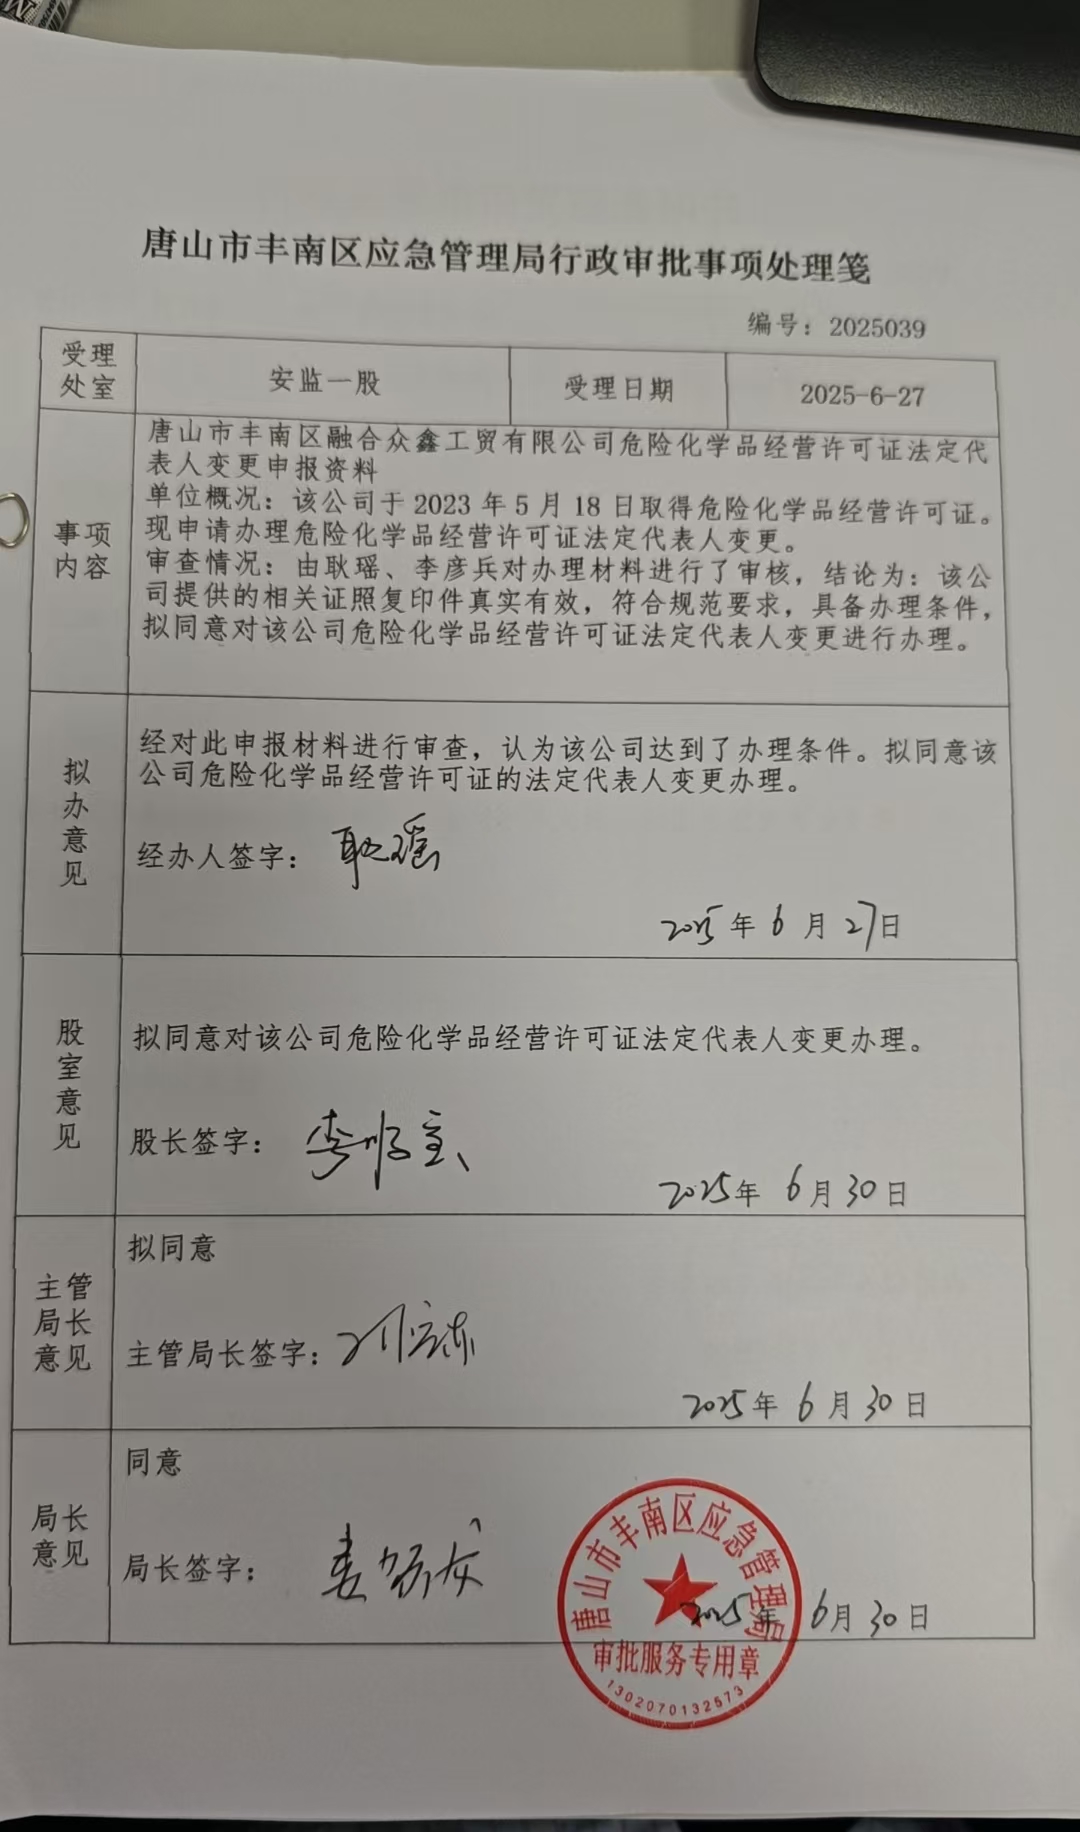 唐山市丰南区应急管理局行政审批事项处理笺
编号：2025039
受理
处室
安监一股
受理日期
2025-6-27
事项
内容
唐山市丰南区融合众鑫工贸有限公司危险化学品经营许可证法定代
表人变更申报资料
单位概况：该公司于 2023 年 5 月 18 日取得危险化学品经营许可证。
现申请办理危险化学品经营许可证法定代表人变更。
审查情况：由耿瑶、李彦兵对办理材料进行了审核，结论为：该公
司提供的相关证照复印件真实有效，符合规范要求，具备办理条件，
拟同意对该公司危险化学品经营许可证法定代表人变更进行办理。
拟
办
意
见
经对此申报材料进行审查，认为该公司达到了办理条件。拟同意该
公司危险化学品经营许可证的法定代表人变更办理。
经办人签字： 耿瑶
2025 年 6 月 27 日
股
室
意
见
拟同意对该公司危险化学品经营许可证法定代表人变更办理。
股长签字：
2025 年 6 月 30 日
主管
局长
意见
拟同意
主管局长签字：
2025 年 6 月 30 日
局长
意见
同意
局长签字：
2025 年 6 月 30 日
唐山市丰南区应急管理局
审批服务专用章
1302070132573